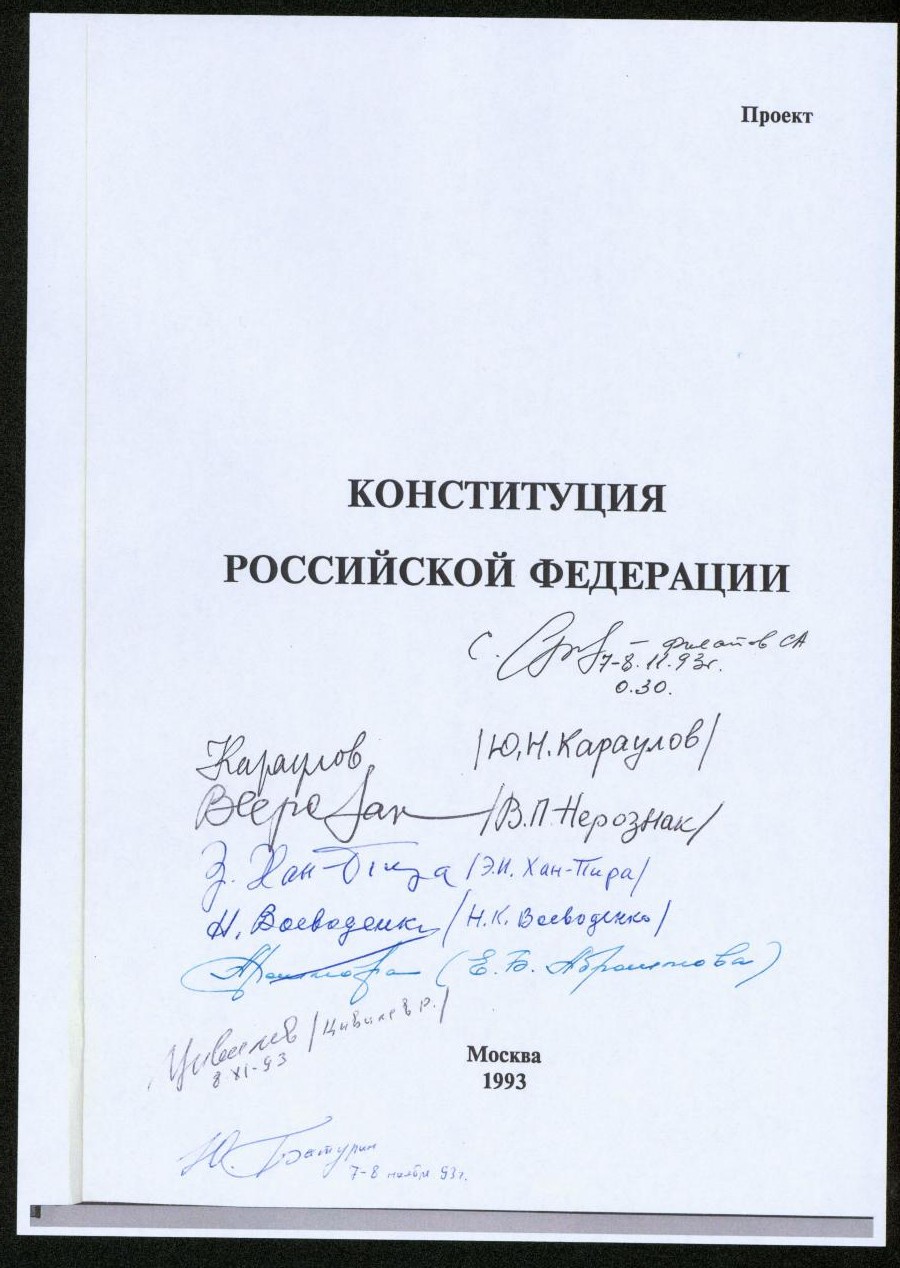 Проект
КОНСТИТУЦИЯ
РОССИЙСКОЙ ФЕДЕРАЦИИ
С. – Филатов СА
7-8.11.93г.
0.30.
Караулов /Ю.Н. Караулов/
/В.П. Нерознак/
Э. Хан-Пира /Э.И. Хан-Пира/
Н. Воеводенко /Н.К. Воеводенко/
(Е.Б. Абросимова)
Цивилев /Цивилев Р./
8 XI-93
Москва
1993
Ю. Батурин
7-8 ноября 93г.